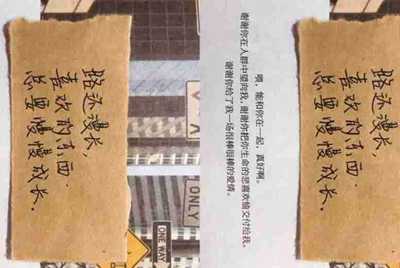 路还漫长，
喜欢的东西
总要慢慢成长。
ONLY
ONE WAY
能和你在一起，真好啊。
谢谢你在人群中望向我，谢谢你把你生命的悲喜欢愉交付给我。
谢谢你给了我一场很棒很棒的爱情。
路还漫长，
喜欢的东西
总要慢慢成长。